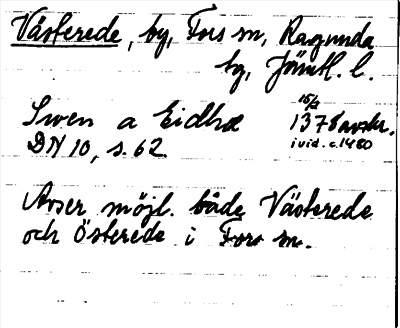 Västerede, by, Fors sn, Ragunda
tg, Jämtl. l.
Swen a Eidhe 15/2 1378 avskr.
DN 10, s. 62 i vid. c. 1480
Avser möjl. både Västerede
och Österede i Fors sn.